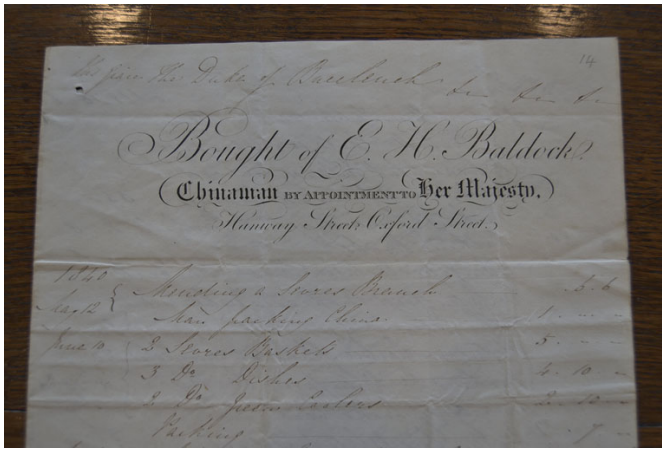 14
His Grace The Duke of Buccleuch
Bought of E. H. Baldock.
Chinaman BY APPOINTMENT TO Her Majesty.
Hanway Street, Oxford Street.
1840
May 12 Mending a Sevres Branch 5 6
Man packing China 1 - -
June 10 2 Sevres Baskets 5 - -
3 Do Dishes 10 -
2 Do 10 -
Packing 7 -